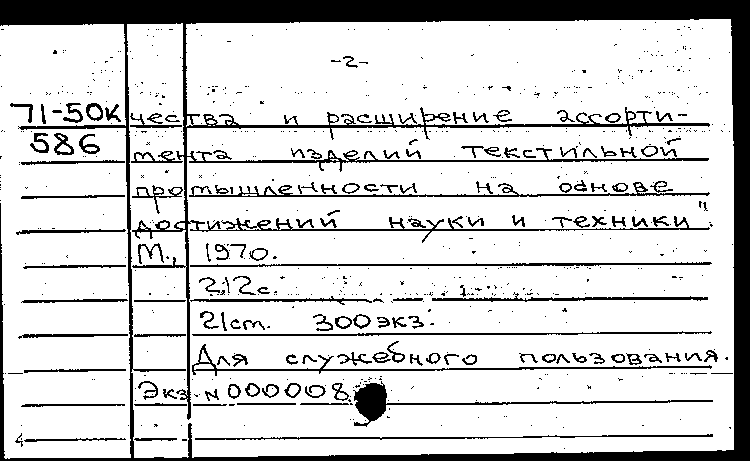 -2-
71-50к чества и расширение ассорти-
586 мента изделий текстильной
промышленности на основе
достижений науки и техники".
М., 1970.
212с.
21см. 300экз.
Для служебного пользования.
Экз. N 000008
4